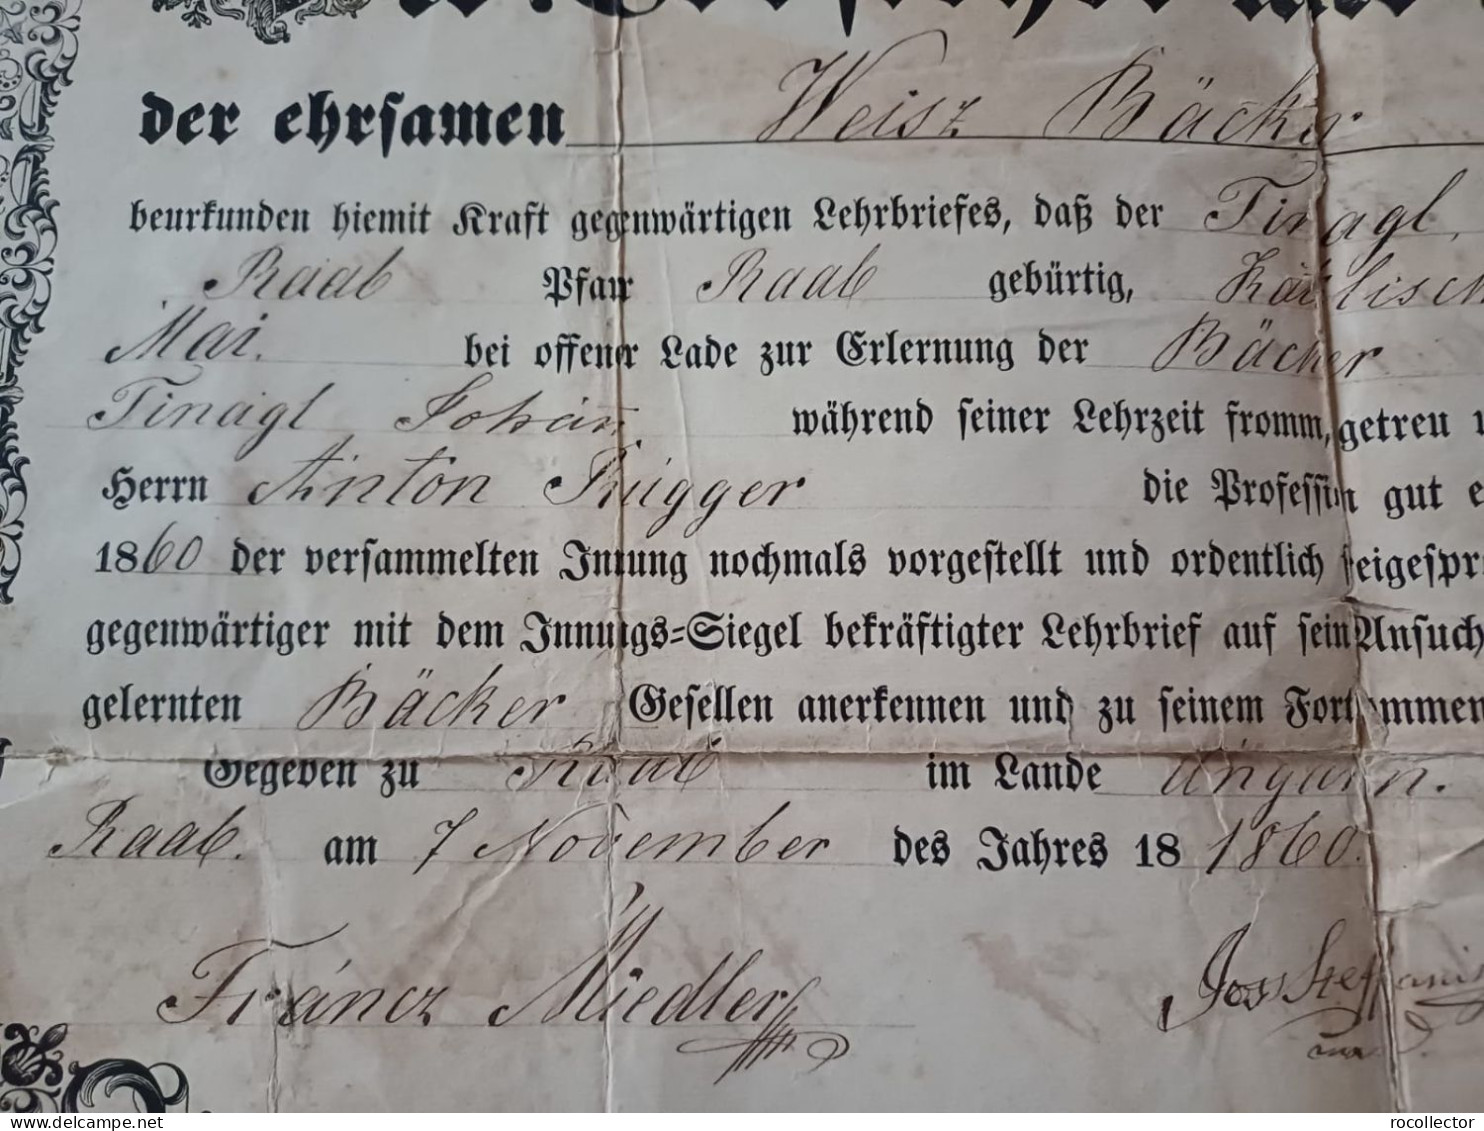 der ehrsamen Weisz Bäcker
beurkunden hiemit Kraft gegenwärtigen Lehrbriefes, daß der Tinagl,
Raab Pfarr Raab gebürtig,
Mai. bei offener Lade zur Erlernung der Bäcker
Tinagl Johan̄ während seiner Lehrzeit fromm, getreu
Herrn Anton die Profession gut
1860 der versammelten Innung nochmals vorgestellt und ordentlich freigespr
gegenwärtiger mit dem Innungs-Siegel bekräftigter Lehrbrief auf sein Ansuch
gelernten Bäcker Gesellen anerkennen und zu seinem Fortkommen
Gegeben zu Raab im Lande Ungarn.
Raab. am 7 November des Jahres 18 1860.
Fráncz Miedler
Jos Steffanits
delcampe.net
rocollector